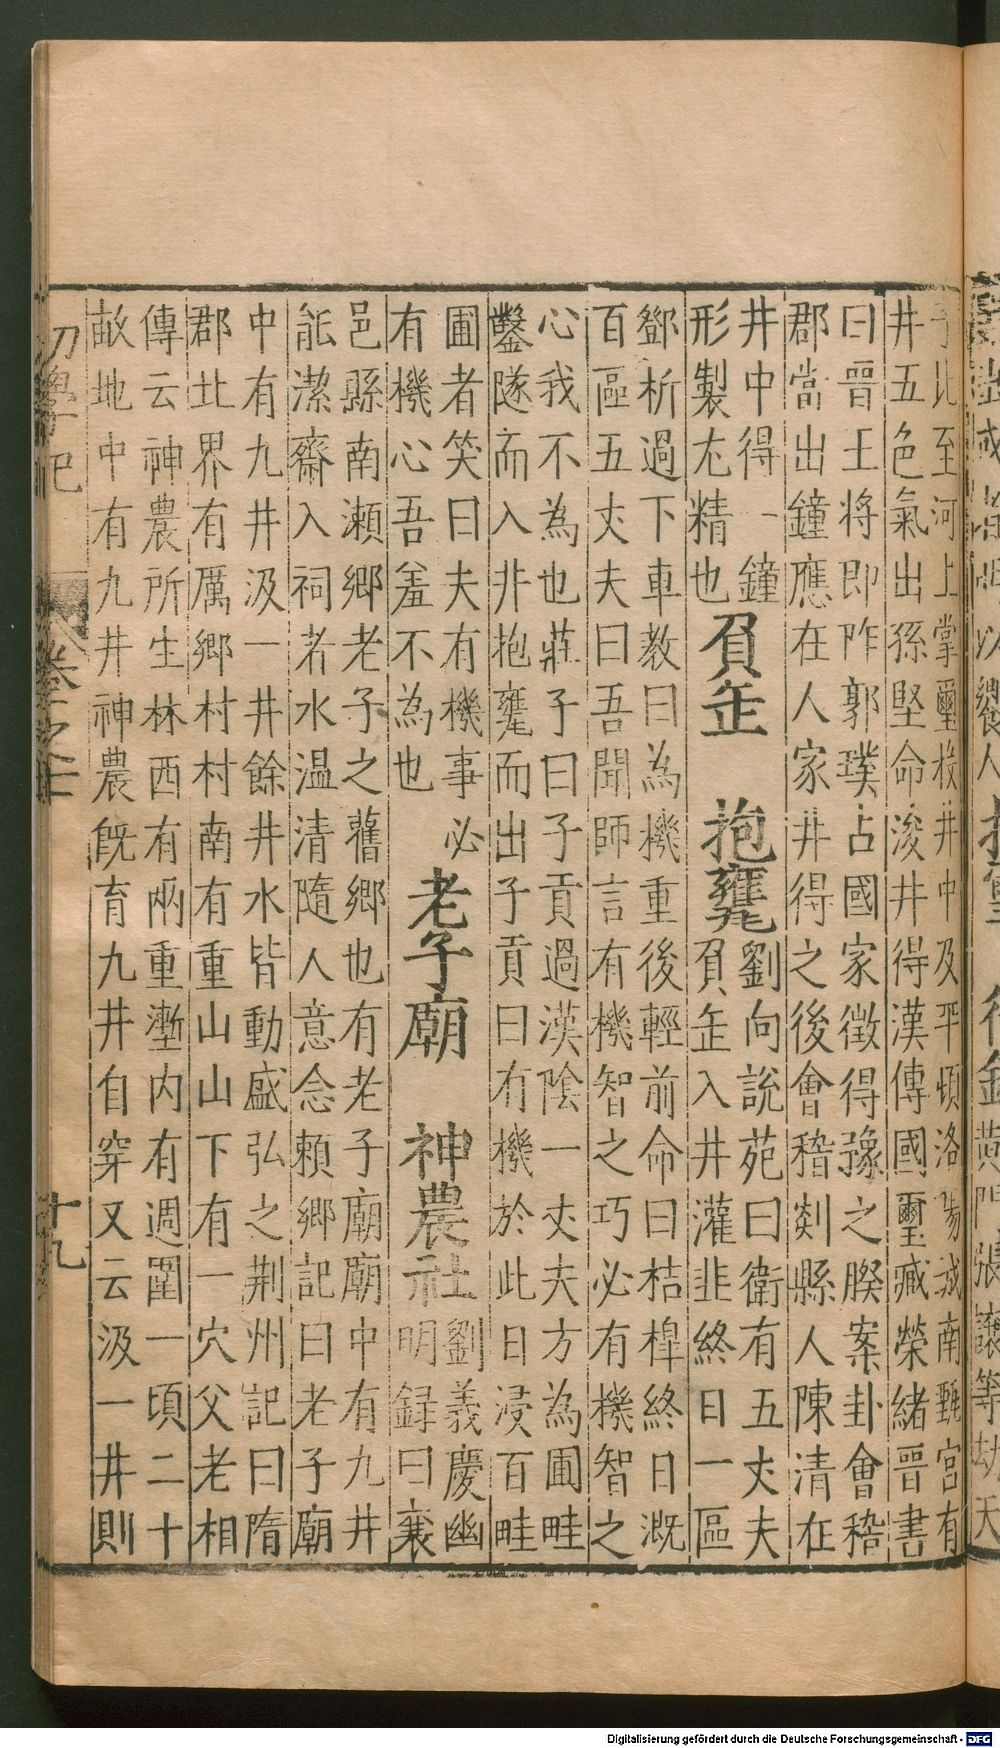 子北至河上掌璽投井中及平頓洛陽城南甄宮有
井五色氣出孫堅命浚井得漢傳國璽臧榮緒晉書
曰晉王將即阼郭璞占國家徵得豫之睽案卦會稽
郡當出鐘應在人家井得之後會稽剡縣人陳清在
井中得一鐘
形製尤精也
負缶　抱甕
劉向說苑曰衛有五丈夫
負缶入井灌韭終日一區
鄧析過下車教曰為機重後輕前命曰桔橰終日溉
百區五丈夫曰吾聞師言有機智之巧必有機智之
心我不為也莊子曰子貢過漢陰一丈夫方為圃畦
鑿隧而入井抱甕而出子貢曰有機於此日浸百畦
圃者笑曰夫有機事必
有機心吾羞不為也
老子廟　神農社
劉義慶幽
明録曰襄
邑縣南瀨鄉老子之舊鄉也有老子廟廟中有九井
能潔齋入祠者水温清隨人意念賴鄉記曰老子廟
中有九井汲一井餘井水皆動盛弘之荆州記曰隋
郡北界有厲鄉村村南有重山山下有一穴父老相
傳云神農所生林西有兩重塹内有週圍一頃二十
畝地中有九井神農既育九井自穿又云汲一井則
初學記
卷之七
十九
Digitalisierung gefördert durch die Deutsche Forschungsgemeinschaft - DFG